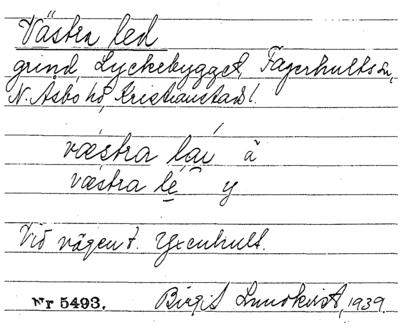 Västra led
grind, Lyckebygget, Fagerhults sn,
N. Åsbo hd, Kristianstads l.
væstra lai ä
væstra lè y
Vid vägen t. Yxenhult.
Nr 5493. Birgit Lundkvist, 1939.